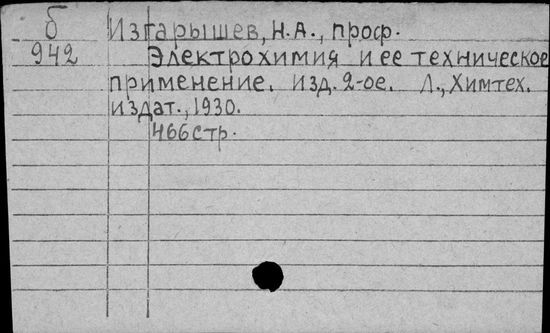 б Изгарышев, Н.А., проф.
942 Электрохимия и ее техническое
применение. Изд. 2-ое. Л., Химтех.
издат., 1930.
466 стр.